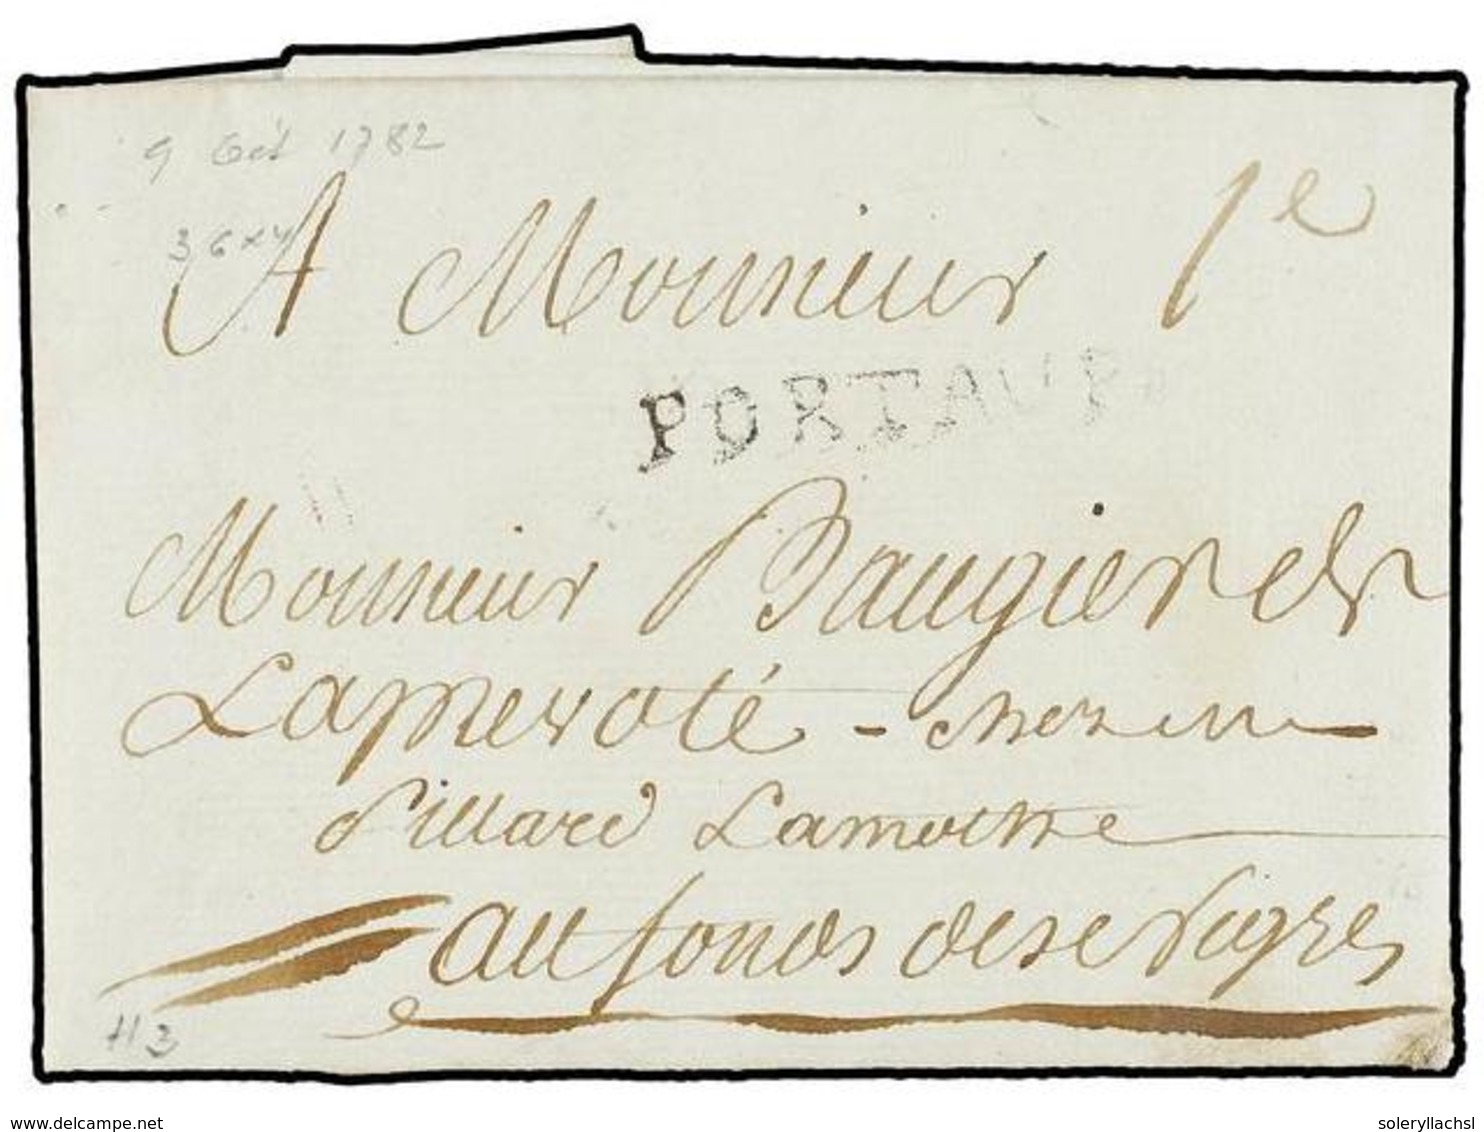 9 Oct 1782
36 x 4
A Monsieur 1e
PORTAUP
Monsieur Baugier de
Laperoté - chez mr
Pillard Lamothe
au fonds des
H3
www.delcampe.net
soleryllachsl